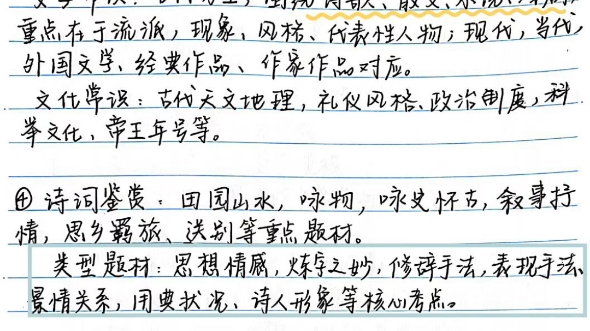 重点在于流派，现象、风格、代表性人物；现代，当代，
外国文学、经典作品、作家作品对应。
文化常识：古代天文地理，礼仪风格、政治制度，科
举文化、帝王年号等。
④ 诗词鉴赏：田园山水，咏物，咏史怀古，叙事抒
情，思乡羁旅、送别等重点题材。
类型题材：思想情感，炼字之妙，修辞手法，表现手法、
景情关系，用典状况、诗人形象等核心考点。